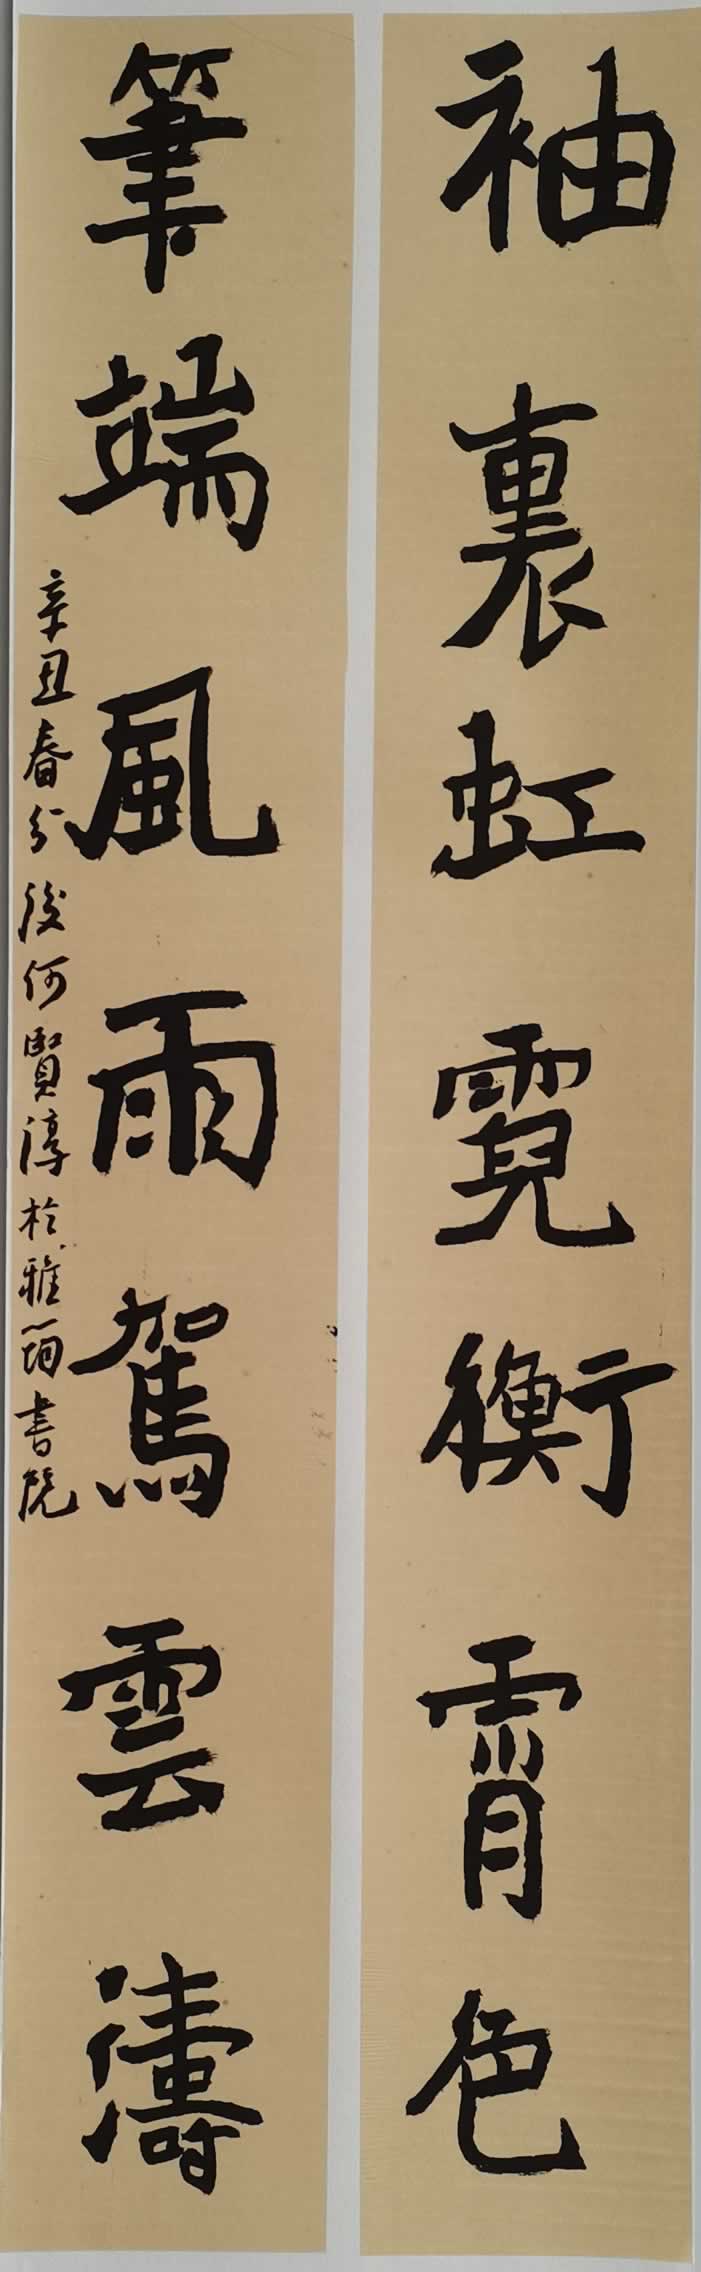 袖裏虹霓衝霄色
筆端風雨駕雲濤
辛丑春分後何賢淳於雅筠書院